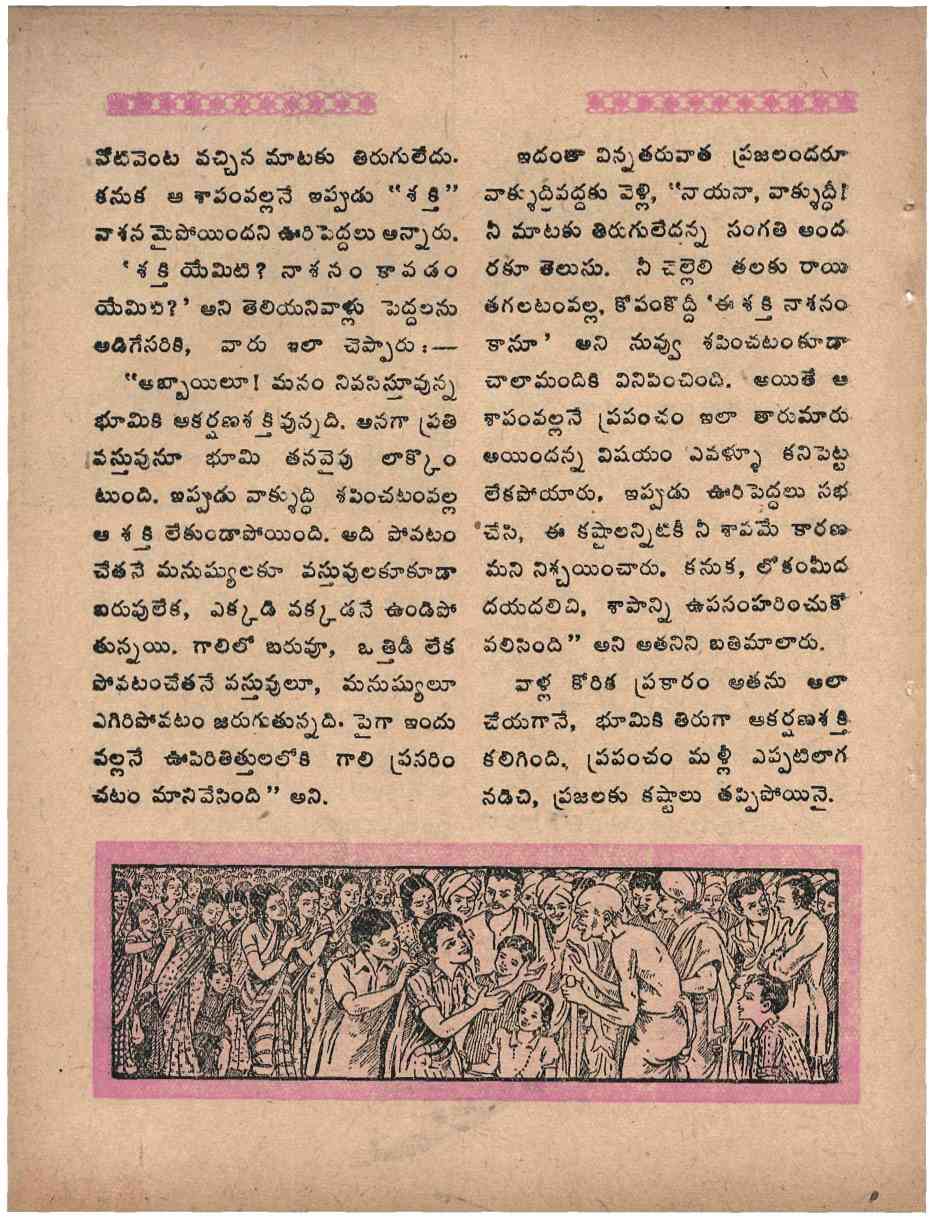 నోటివెంట వచ్చిన మాటకు తిరుగులేదు.
కనుక ఆ శాపంవల్లనే ఇప్పుడు “శక్తి”
నాశనమైపోయిందని ఊరిపెద్దలు అన్నారు.
‘శక్తి యేమిటి? నాశనం కావడం
యేమిటి?’ అని తెలియనివాళ్లు పెద్దలను
అడిగేసరికి, వారు ఇలా చెప్పారు:—
“అబ్బాయిలూ! మనం నివసిస్తూవున్న
భూమికి ఆకర్షణశక్తి వున్నది. అనగా ప్రతి
వస్తువునూ భూమి తనవైపు లాక్కొం
టుంది. ఇప్పుడు వాక్శుద్ధి శపించటంవల్ల
ఆ శక్తి లేకుండాపోయింది. అది పోవటం
చేతనే మనుష్యులకూ వస్తువులకూకూడా
బరువులేక, ఎక్కడి వక్కడనే ఉండిపో
తున్నయి. గాలిలో బరువూ, ఒత్తిడీ లేక
పోవటంచేతనే వస్తువులూ, మనుష్యులూ
ఎగిరిపోవటం జరుగుతున్నది. పైగా ఇందు
వల్లనే ఊపిరితిత్తులలోకి గాలి ప్రసరిం
చటం మానివేసింది” అని.
ఇదంతా విన్నతరువాత ప్రజలందరూ
వాక్శుద్ధివద్దకు వెళ్లి, “నాయనా, వాక్శుద్ధీ!
నీ మాటకు తిరుగులేదన్న సంగతి అంద
రకూ తెలుసు. నీ చెల్లెలి తలకు రాయి
తగలటంవల్ల, కోపంకొద్దీ ‘ఈ శక్తి నాశనం
కానూ’ అని నువ్వు శపించటంకూడా
చాలామందికి వినిపించింది. అయితే ఆ
శాపంవల్లనే ప్రపంచం ఇలా తారుమారు
అయిందన్న విషయం ఎవళ్ళూ కనిపెట్ట
లేకపోయారు. ఇప్పుడు ఊరిపెద్దలు సభ
చేసి, ఈ కష్టాలన్నిటికీ నీ శాపమే కారణ
మని నిశ్చయించారు. కనుక, లోకంమీద
దయదలిచి, శాపాన్ని ఉపసంహరించుకో
వలిసింది” అని అతనిని బతిమాలారు.
వాళ్ల కోరిక ప్రకారం అతను అలా
చేయగానే, భూమికి తిరుగా ఆకర్షణశక్తి
కలిగింది. ప్రపంచం మళ్లీ ఎప్పటిలాగ
నడిచి, ప్రజలకు కష్టాలు తప్పిపోయినై.